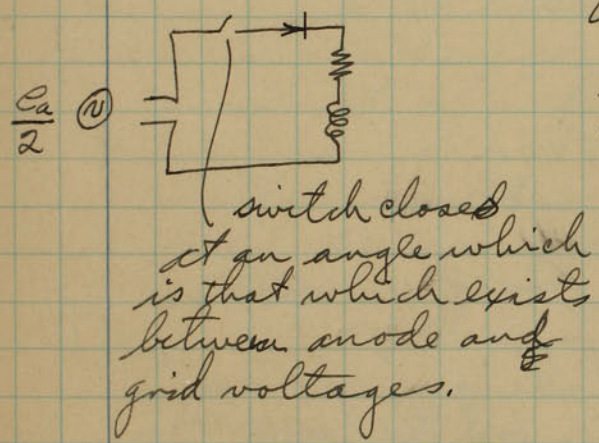 e_a/2
switch closed
at an angle which
is that which exists
between anode and
grid voltages.